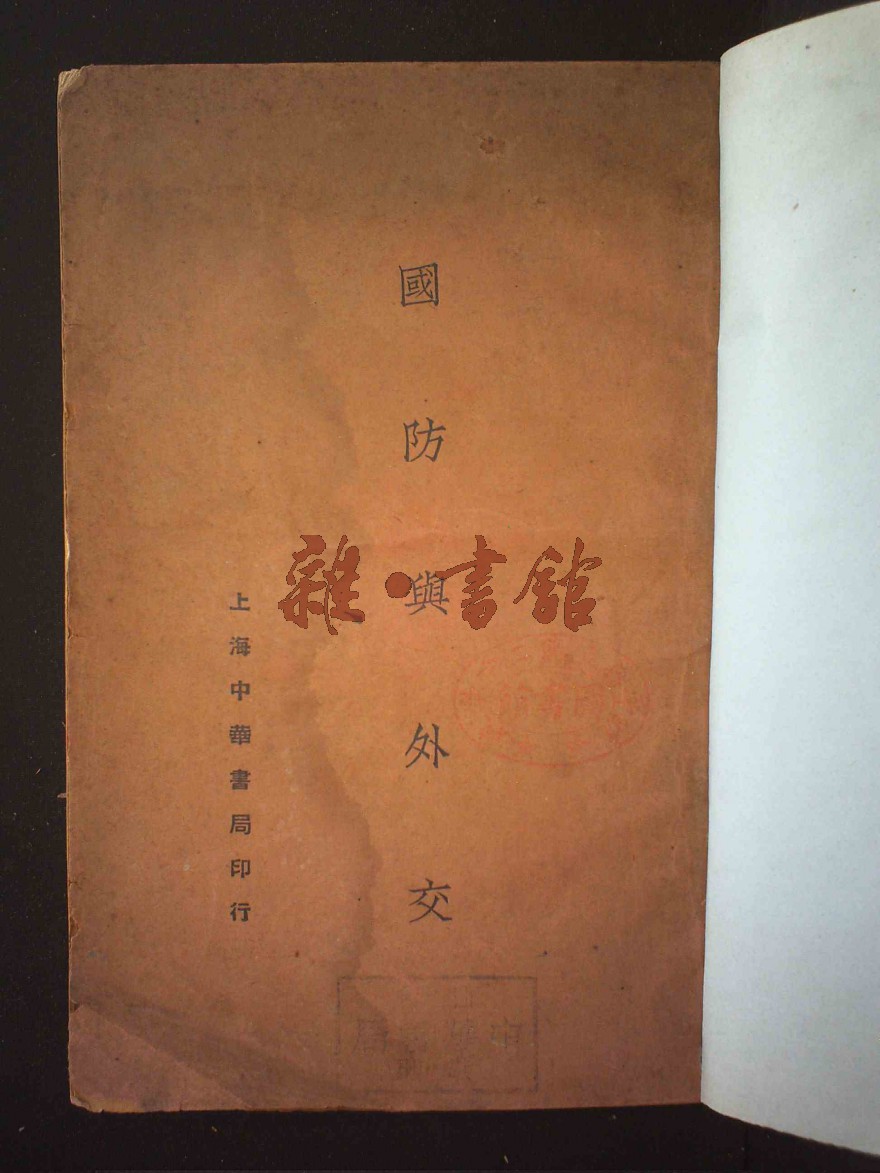 國防與外交
上海中華書局印行
雜·書館